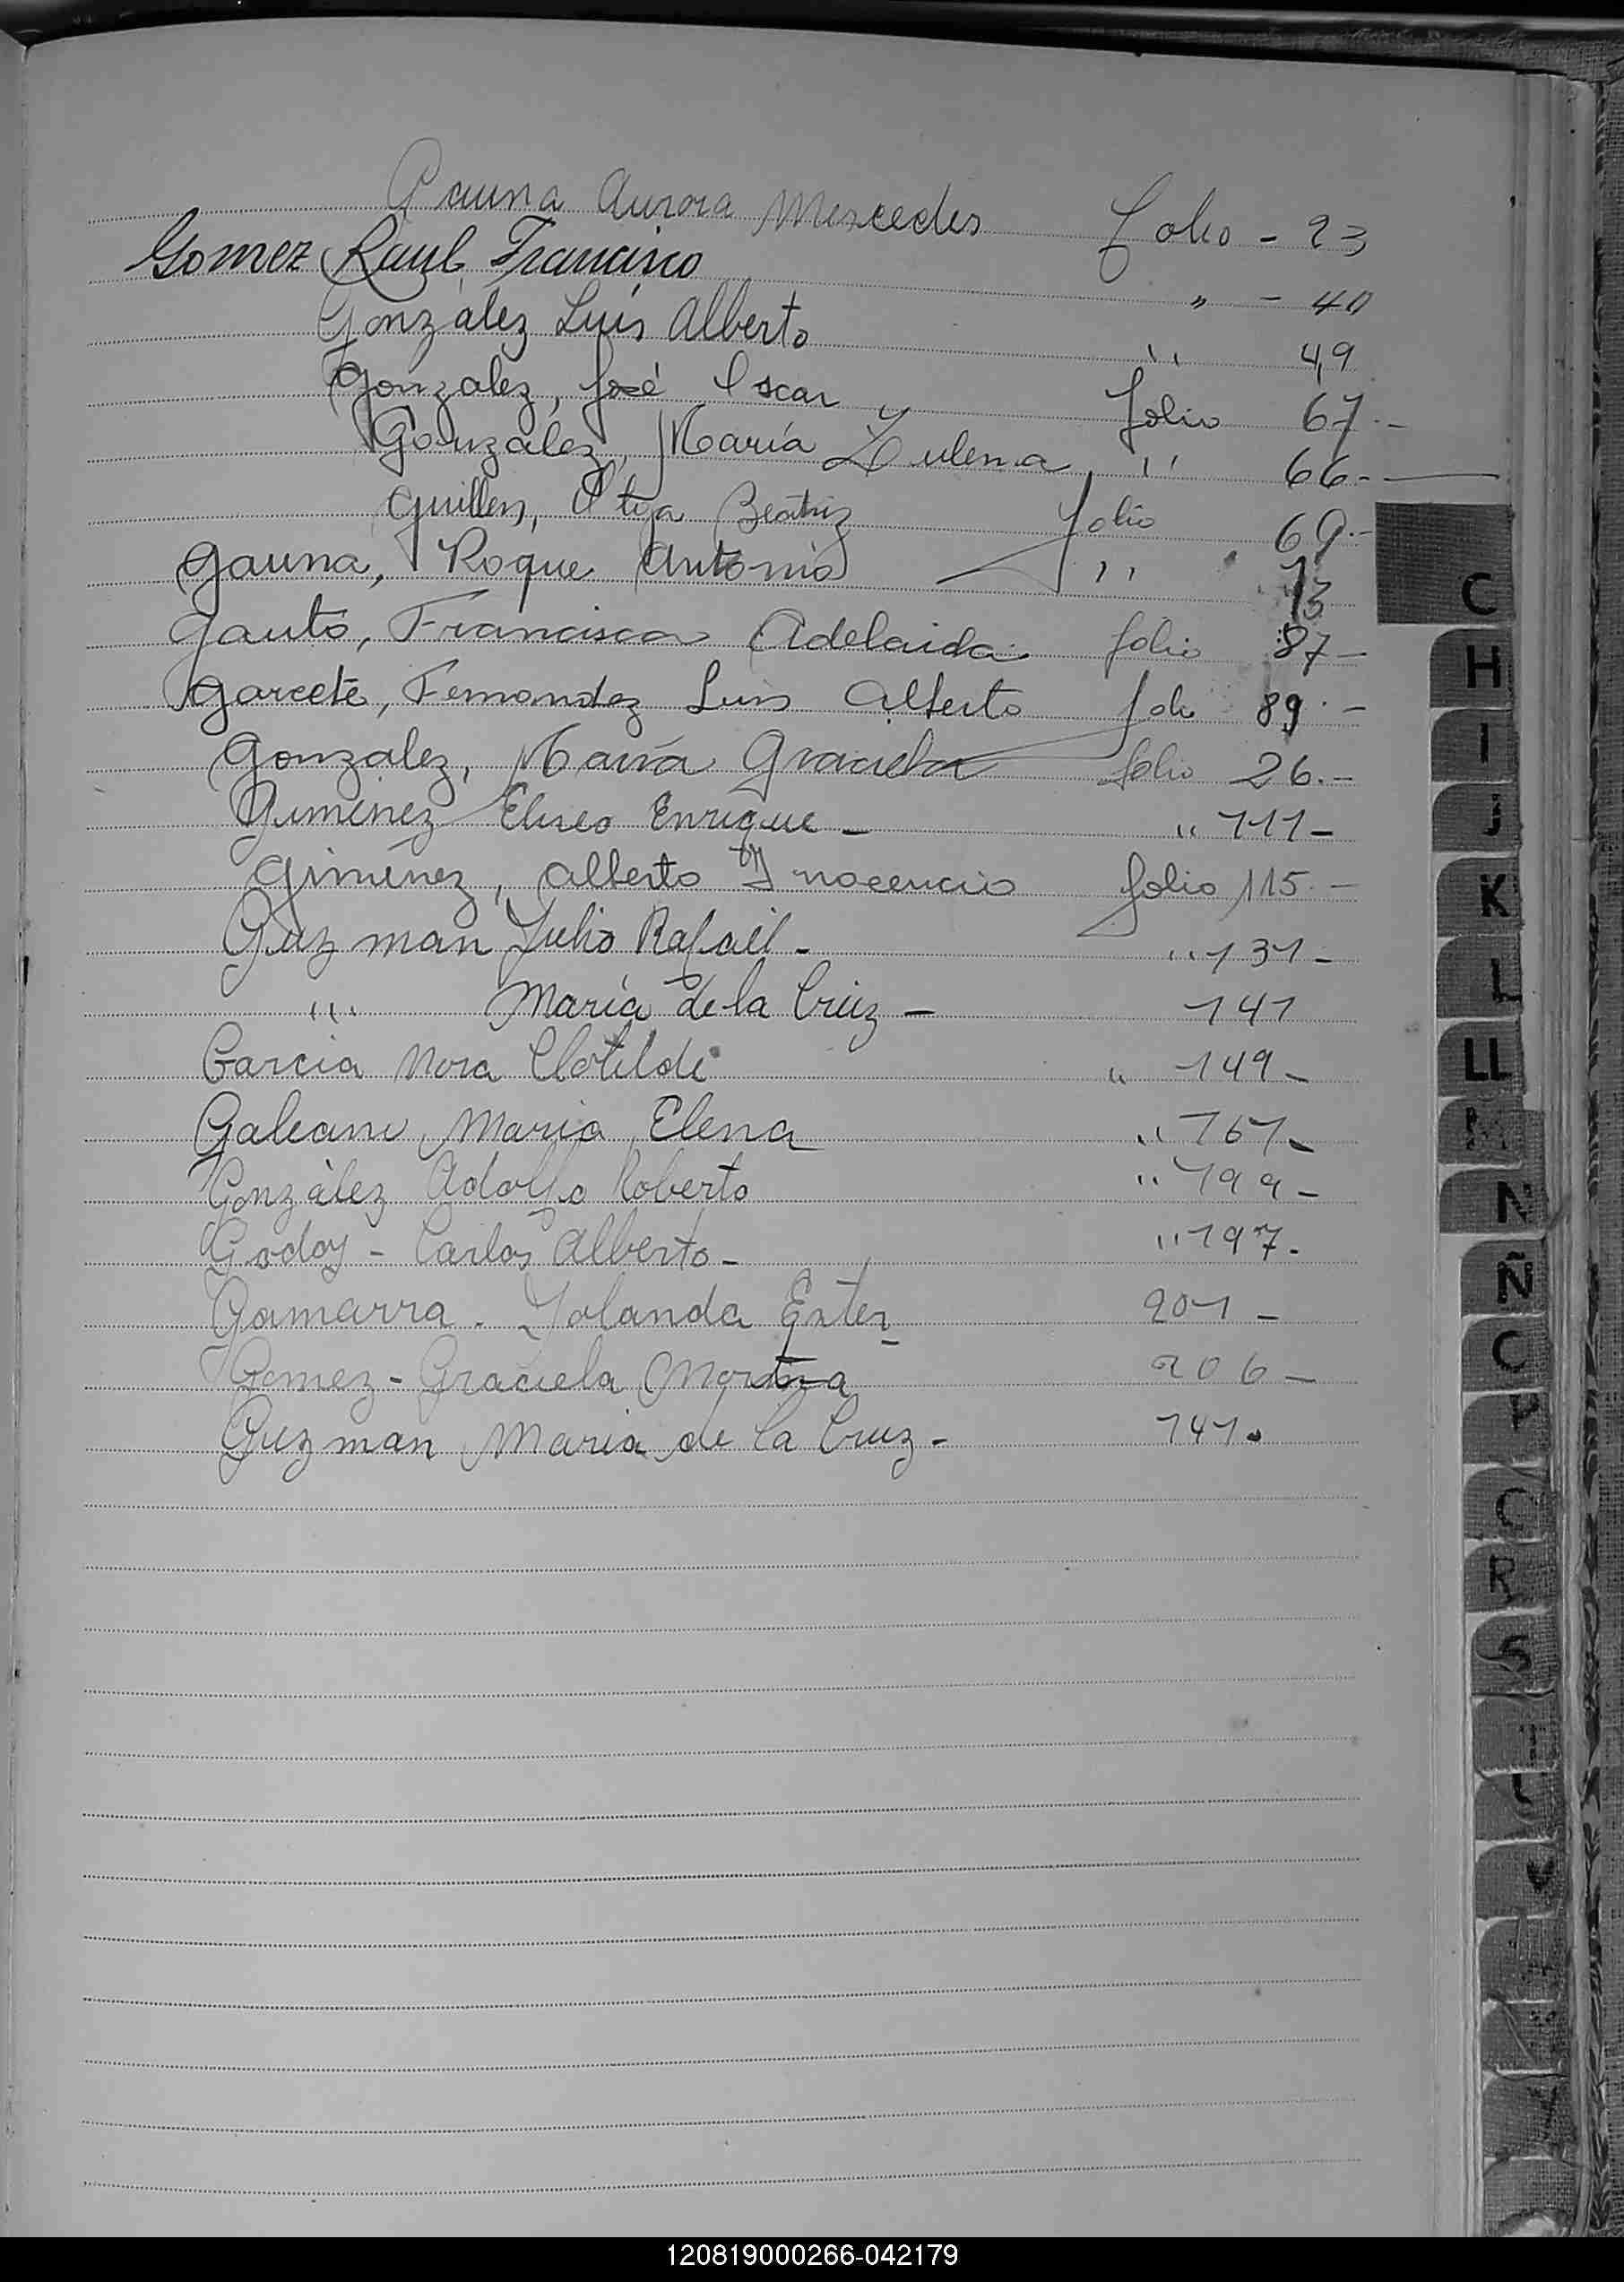 Gauna Aurora Mercedes folio - 23
Gomez Raul Francisco " - 40
González Luis Alberto " 49
Gonzalez, José Oscar folio 67.-
González, María Zulema, " 66.-
Guillen, Olga Beatriz folio 69.-
Gauna, Roque Antonio " 73
Gauto, Francisca Adelaida folio 87-
Garcete, Fernandez Luis Alberto folio 89.-
Gonzalez, María Graciela folio 26.-
Gimenez Eliseo Enrique - " 111-
Giménez, Alberto Inocencio folio 115.-
Guzman Julio Rafael - " 131-
" María de la Cruz - 141
Garcia Nora Clotilde " 149-
Galeano Maria Elena " 161-
González Adolfo Roberto " 199-
Godoy - Carlos Alberto - " 197-
Gamarra - Yolanda Ester 201-
Gomez - Graciela 206-
Guzman Maria de la Cruz - 141.
C
H
I
J
K
L
LL
M
N
Ñ
O
P
Q
R
S
T
120819000266-042179